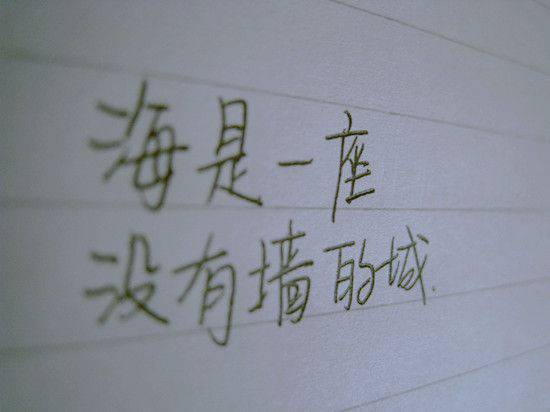 海是一座
没有墙的域.